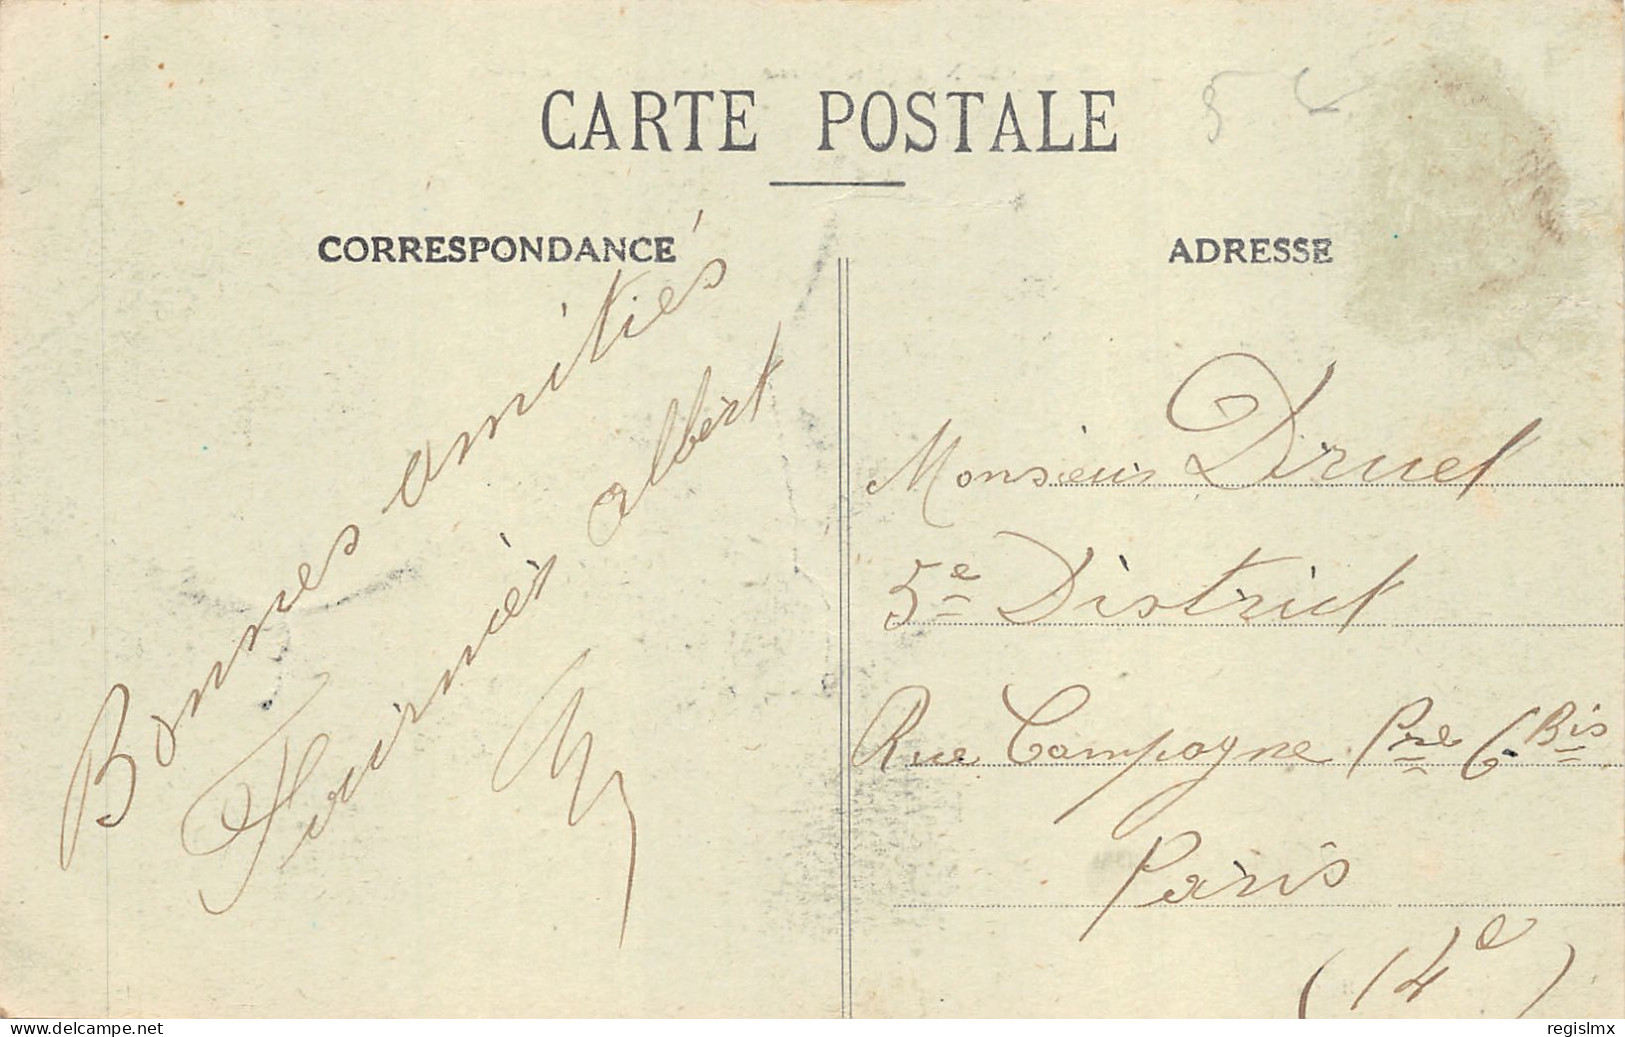 CARTE POSTALE
CORRESPONDANCE
ADRESSE
Bonnes amitiés
Fournier Albert
Monsieur Druel
5e District
Rue Campagne Pre 6 Bis
Paris
(14e)
www.delcampe.net
regislmx